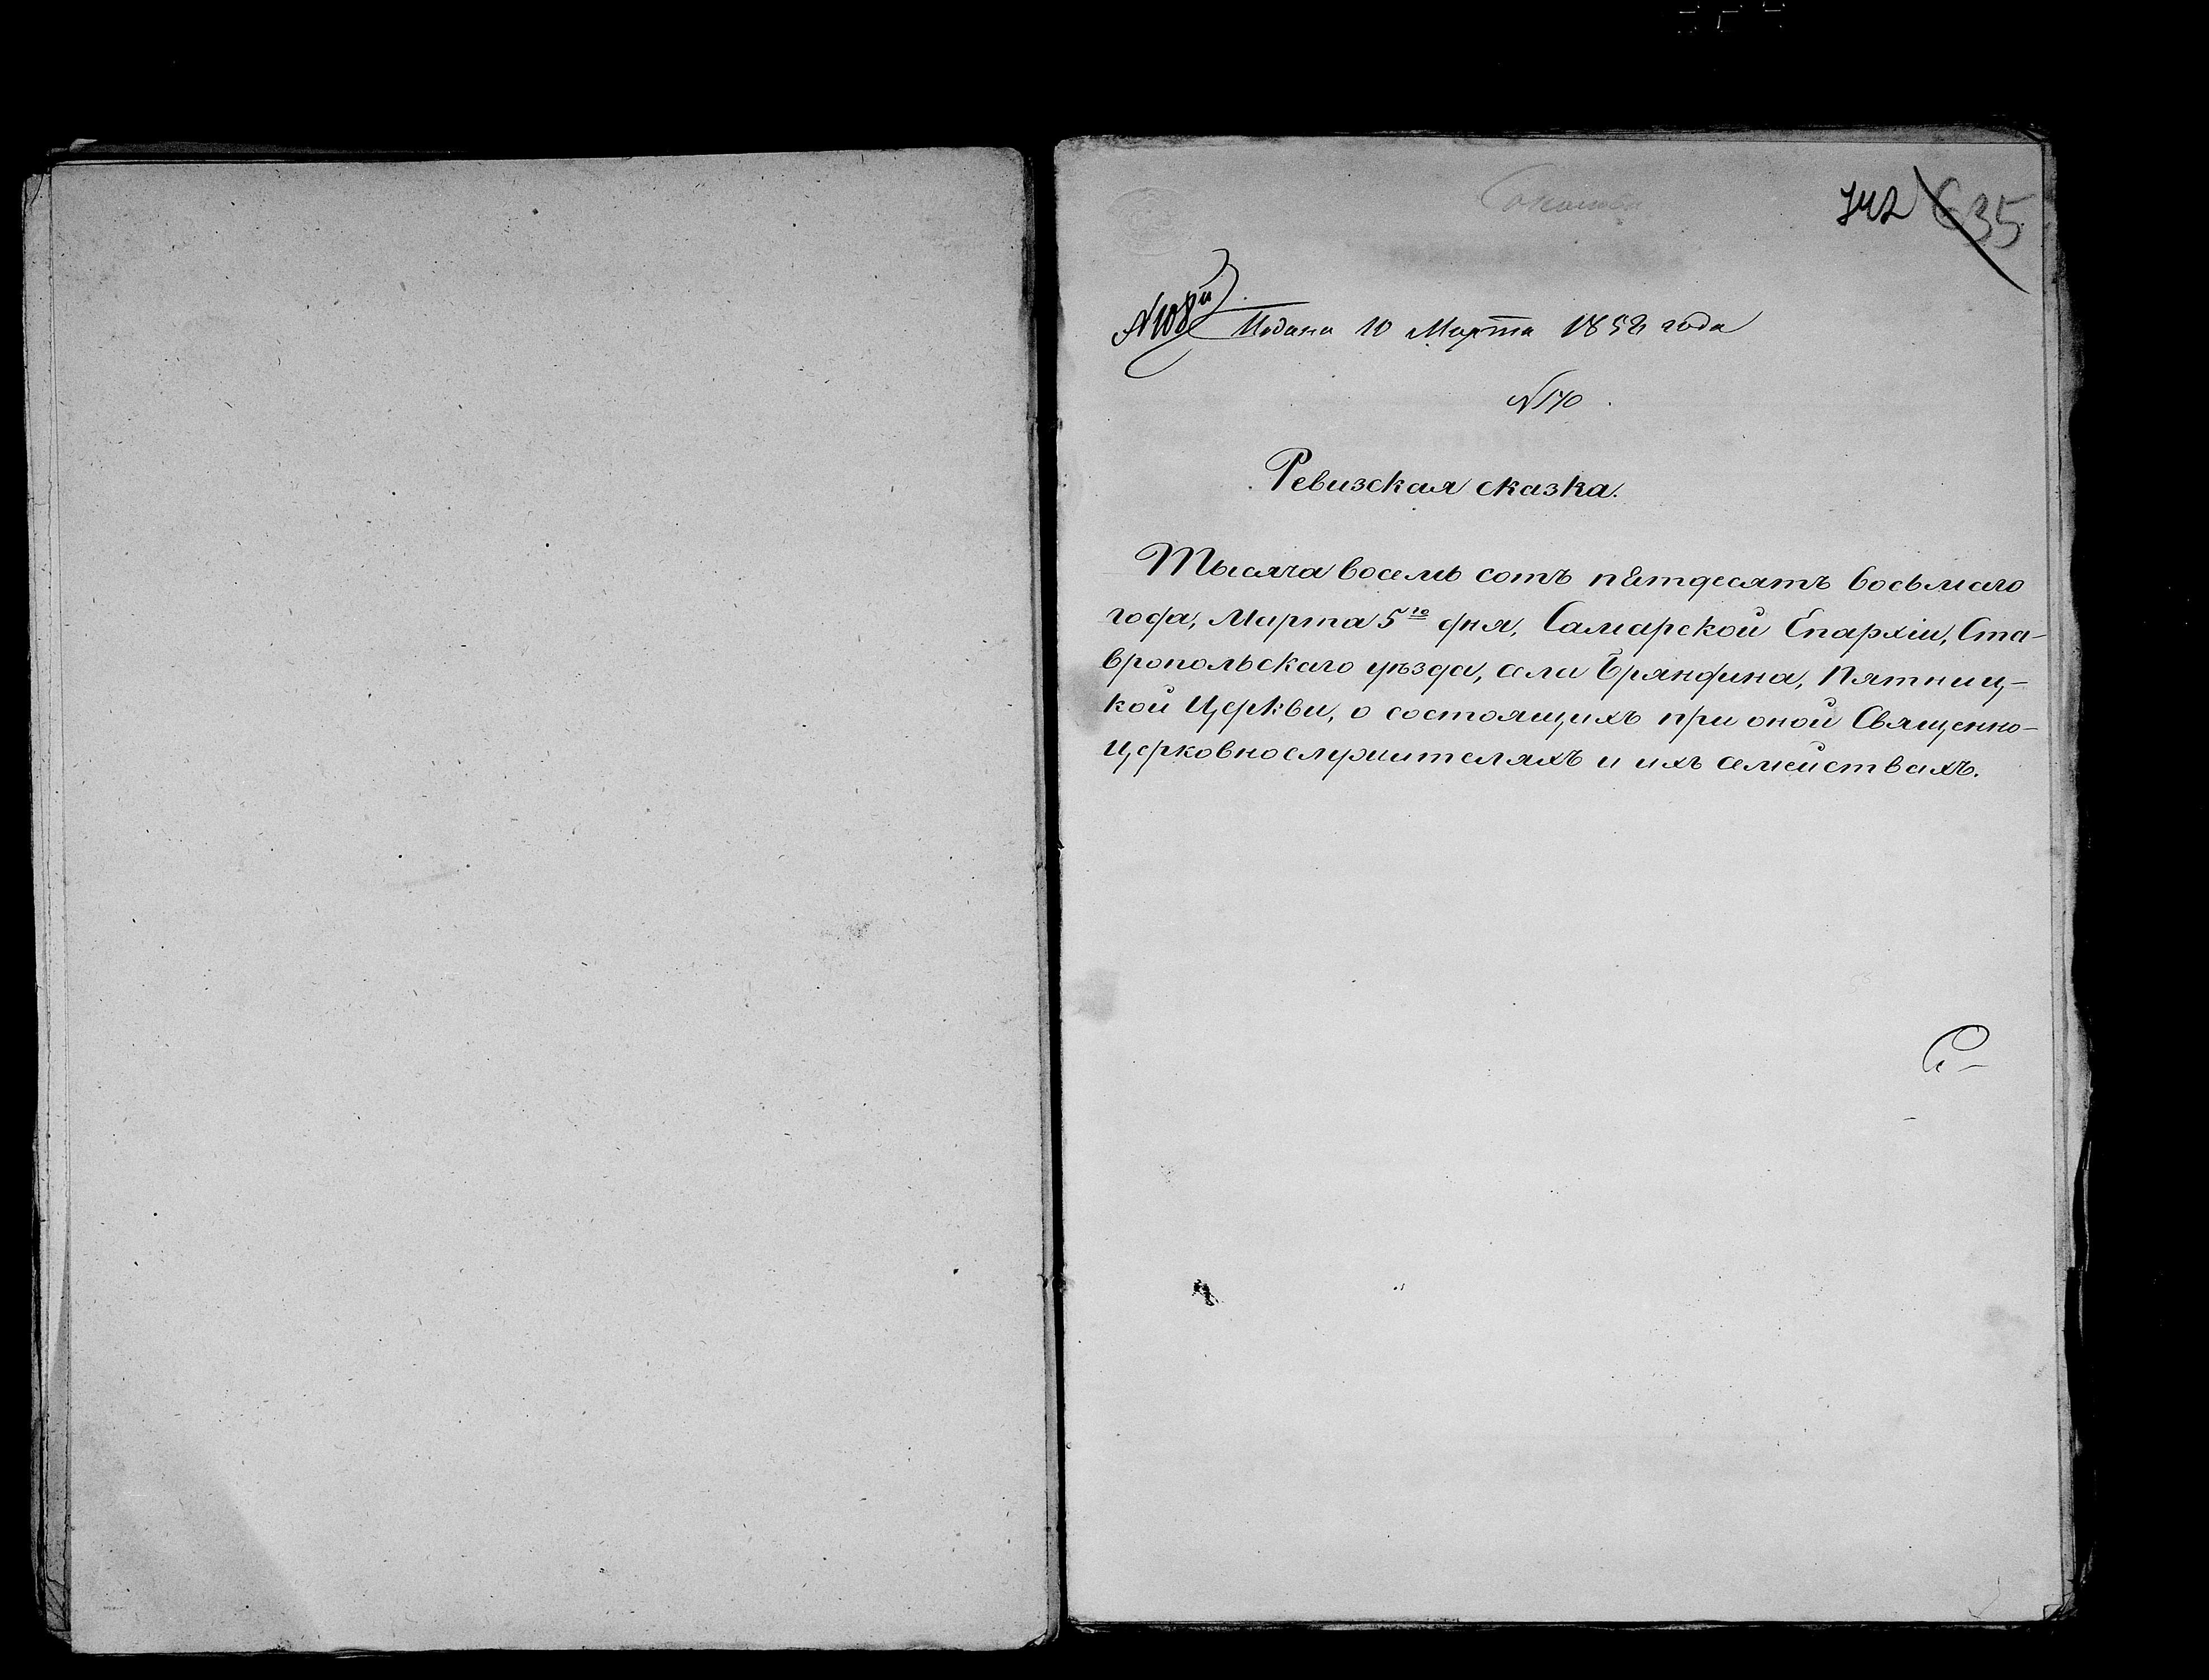 742 635
№ 108й Подана 10 Марта 1858 года
№ 170
Ревизская сказка.
Тысяча восемь сотъ пятдесятъ восьмаго
года, Марта 5го дня, Самарской Епархіи, Ста-
вропольскаго уѣзда, села Бряндина, Пятниц-
кой Церкви, о состоящихъ при оной Священно-
церковнослужителяхъ и ихъ семействахъ.